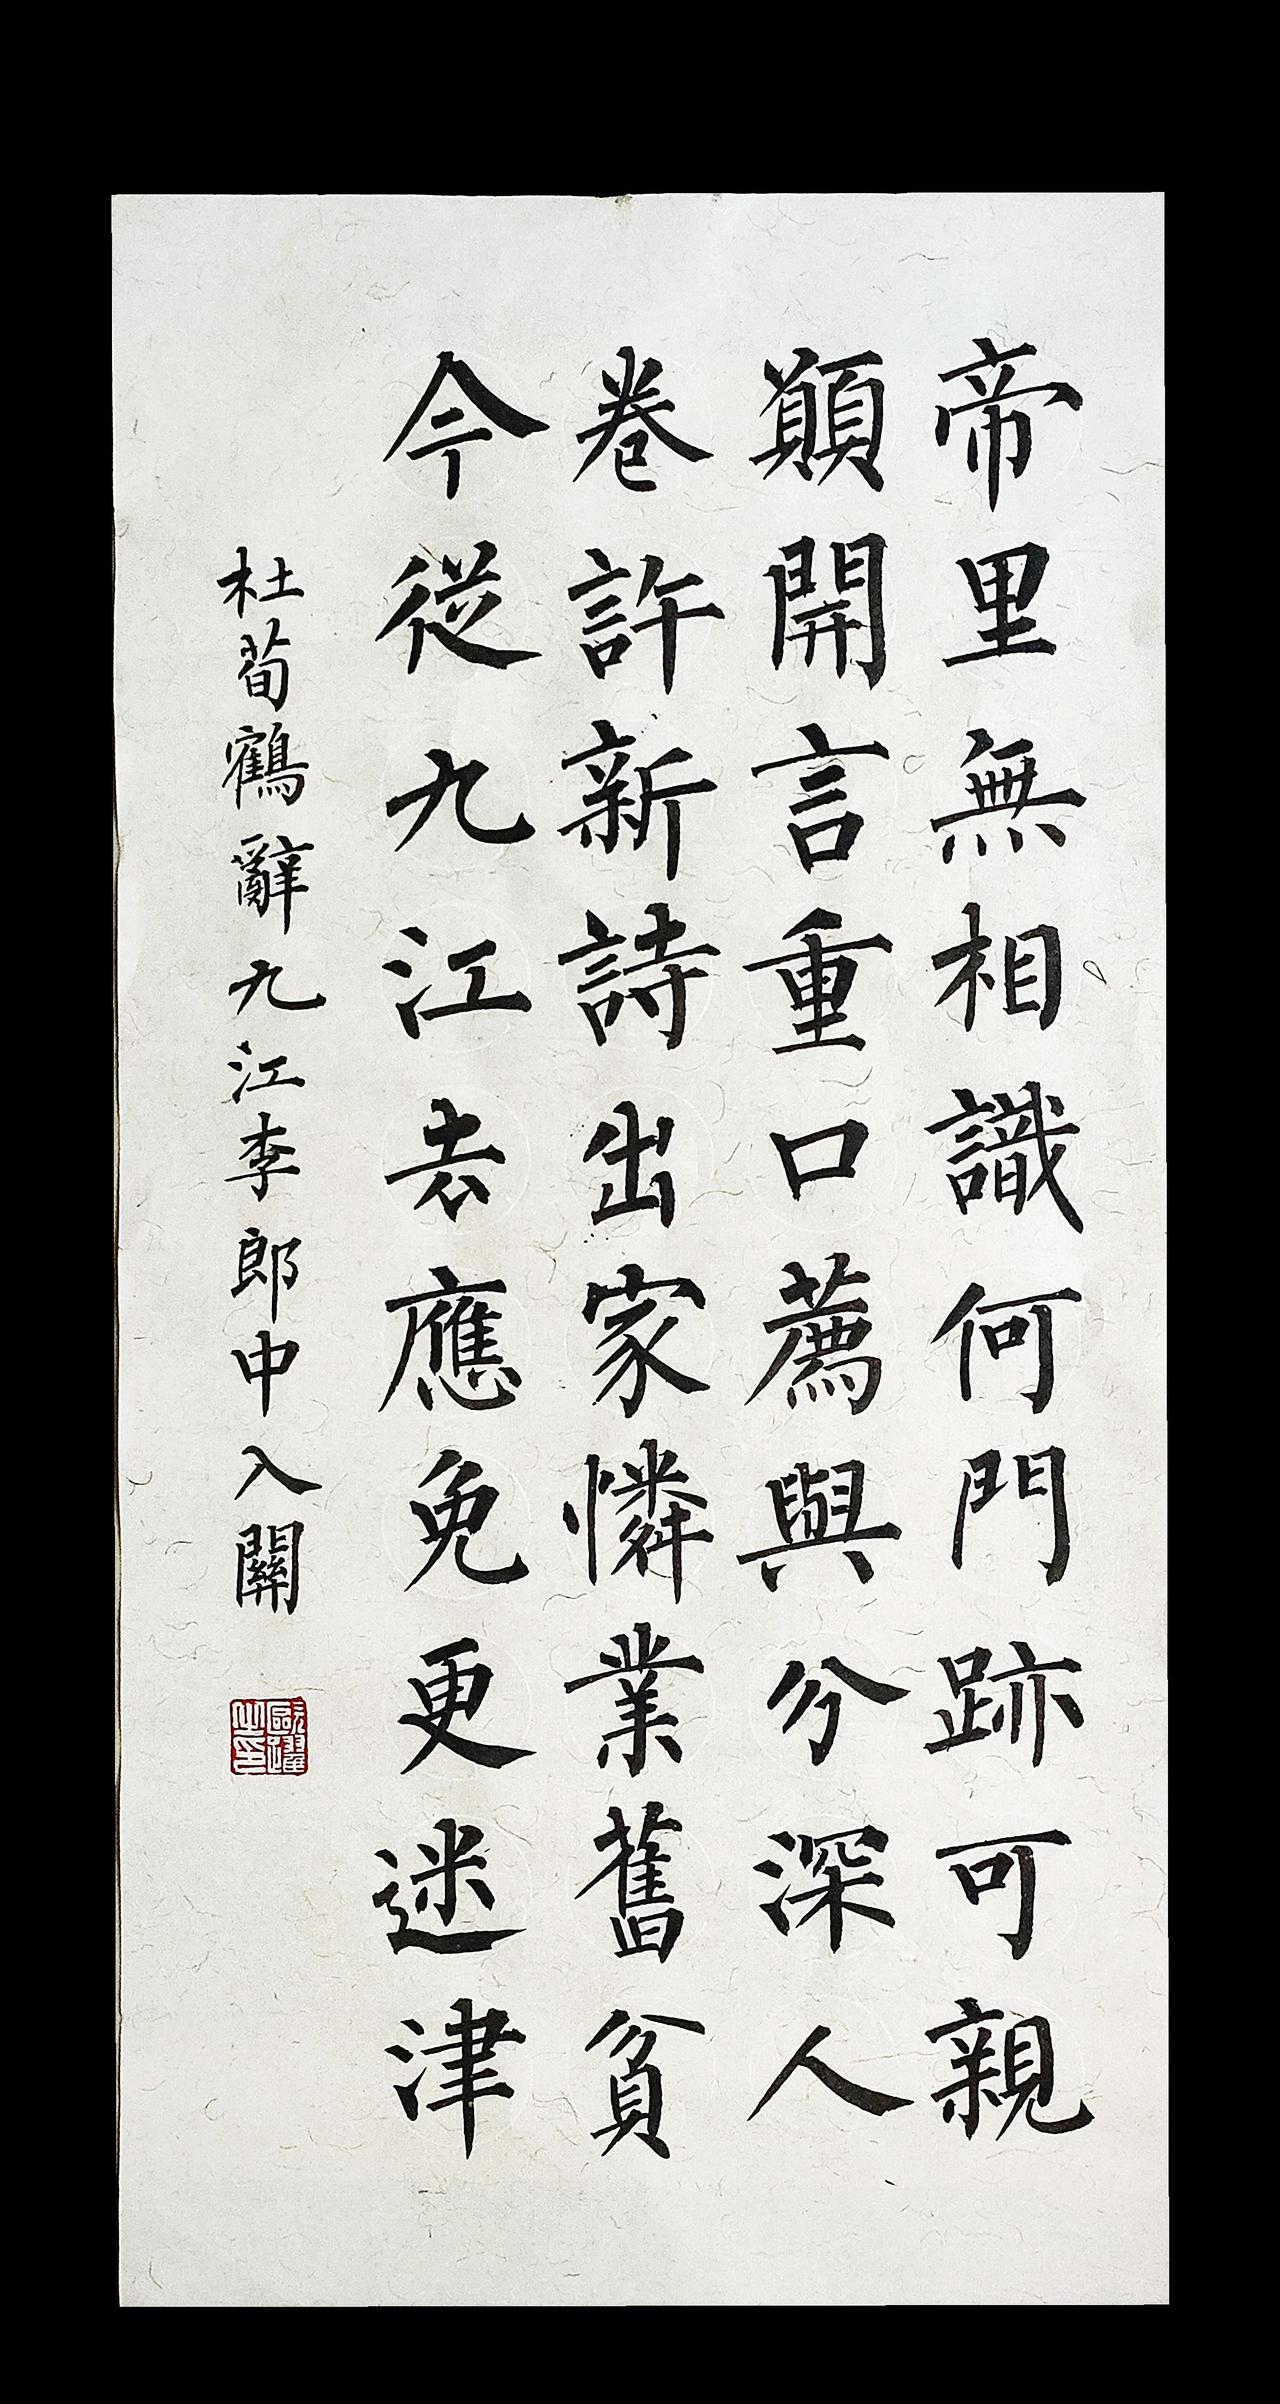 帝里無相識何門跡可親
顯開言重口薦與分深人
卷許新詩出家憐業舊貧
今從九江去應免更迷津
杜荀鶴辭九江李郎中入關
歐陽
之印